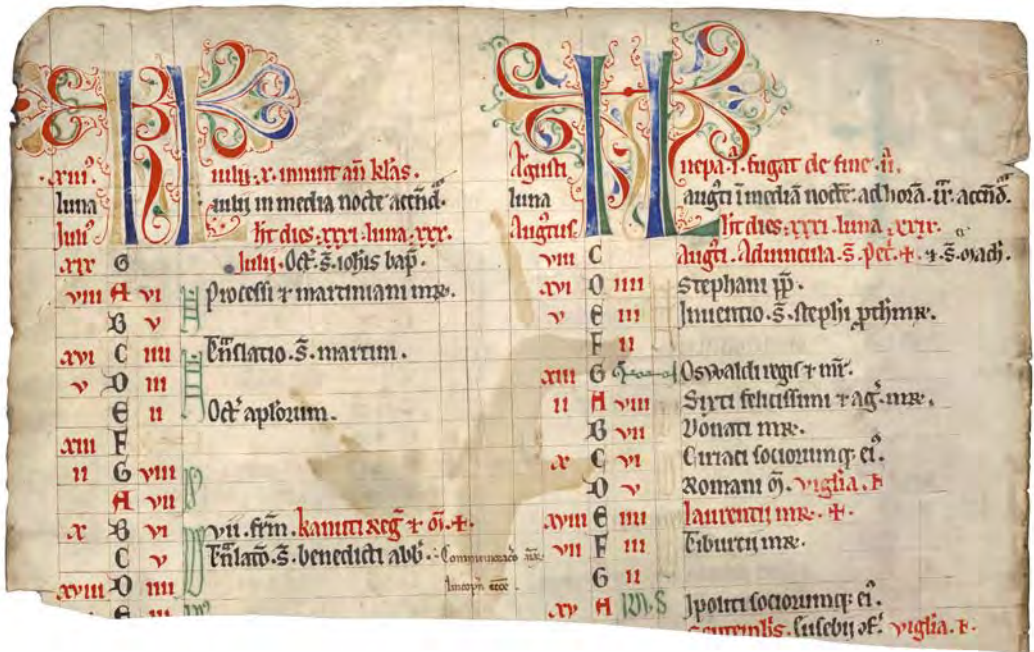 .xiii.
luna
Julii
iulij .x. innuit an̄ kłas.
iulij in media nocte accn̄d.
hīt dies .xxxi. luna .xxx.
xix G Julij. Oct̄. S̄. ioħis bap̄.
viii A vi Processi ⁊ martiniani mr̄.
B v
xvi C iiii T̄nslatio .S̄. martini.
v D iii
E ii Oct̄ apłorum.
xiii F
ii G viii
A vii
x B vi vii. fr̄m. kanuti reg̅ ⁊ m̄. +.
C v T̄nslatō .S̄. benedicti abb̄.
xviii D iiii
E iii
Agusti
luna
Augustus
nepa .i. fugat de fine .ii.
augti ī mediā nocte: ad horā .ii. accn̄d.
hīt dies .xxxi. luna .xxix.
viii C Augti. Aduincula .S̄. pet̄. +. ⁊ .S̄. mach.
xvi D iiii Stephani p̄p.
v E iii Inuentio .S̄. stephi pthimr̄.
F ii
xiii G Oswaldi regis ⁊ mr̄.
ii A viii Sixti felicissimi ⁊ ag̅. mr̄.
B vii Donati mr̄.
x C vi Ciriaci sociorumq; ei᷒.
D v Romani m̄. vigilia. F
xviii E iiii laurentij mr̄. +.
vii F iii Tiburcij mr̄.
G ii
xv A IDUS Ipoliti sociorumq; ei᷒.
Septembris. Eusebij cf̄. vigilia. F.